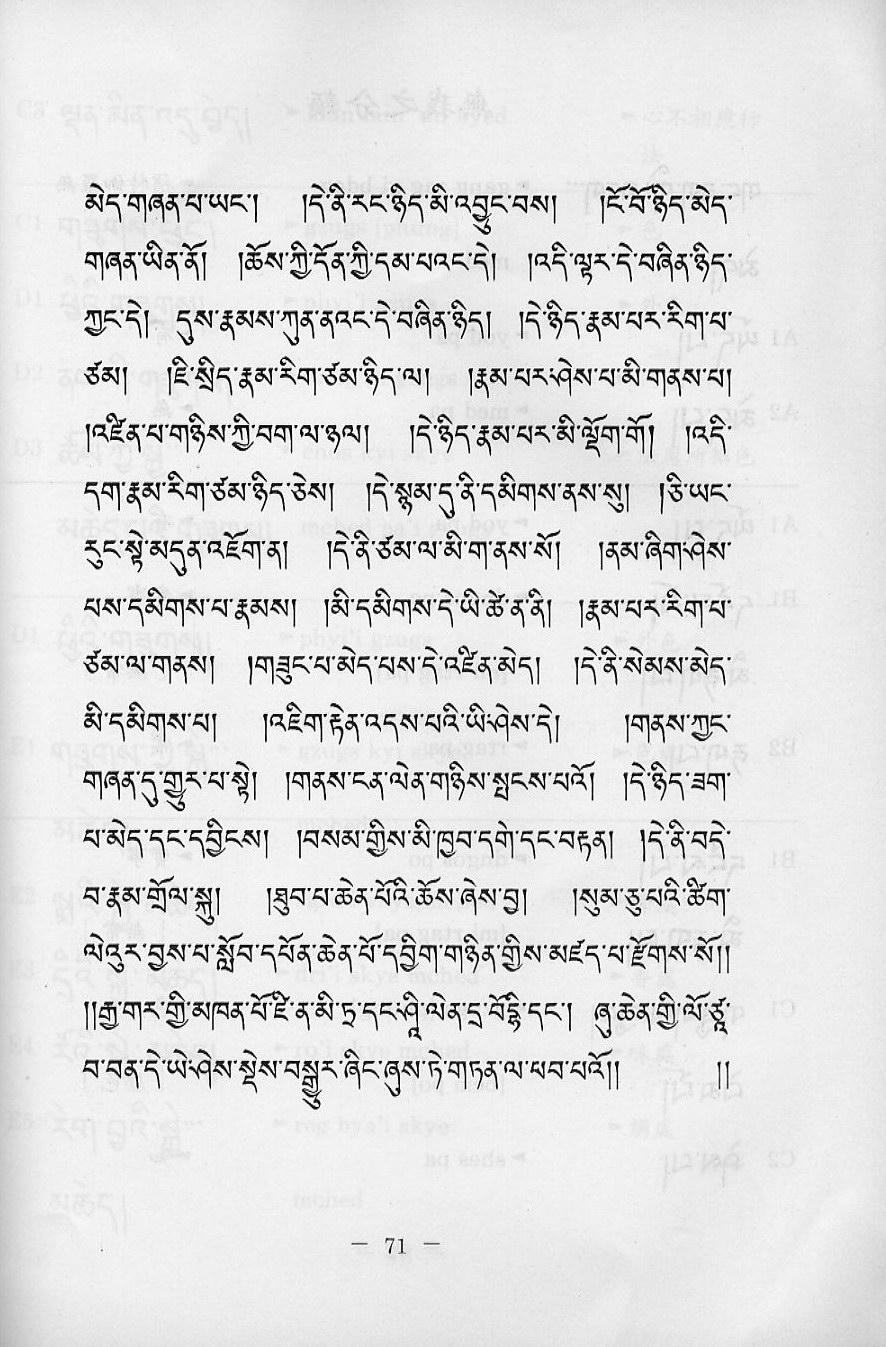 མེད་གཞན་པ་ཡང་། །དེ་ནི་རང་ཉིད་མི་འབྱུང་བས། །ངོ་བོ་ཉིད་མེད་
གཞན་ཡིན་ནོ། །ཆོས་ཀྱི་དོན་ཀྱི་དམ་པའང་དེ། །འདི་ལྟར་དེ་བཞིན་ཉིད་
ཀྱང་དེ། དུས་རྣམས་ཀུན་ནའང་དེ་བཞིན་ཉིད། །དེ་ཉིད་རྣམ་པར་རིག་པ་
ཙམ། །ཇི་སྲིད་རྣམ་རིག་ཙམ་ཉིད་ལ། །རྣམ་པར་ཤེས་པ་མི་གནས་པ།
།འཛིན་པ་གཉིས་ཀྱི་བག་ལ་ཉལ། །དེ་ཉིད་རྣམ་པར་མི་ལྡོག་གོ། །འདི་
དག་རྣམ་རིག་ཙམ་ཉིད་ཅེས། །དེ་སྙམ་དུ་ནི་དམིགས་ནས་སུ། །ཅི་ཡང་
རུང་སྟེ་མདུན་འཇོག་ན། །དེ་ནི་ཙམ་ལ་མི་གནས་སོ། །ནམ་ཞིག་ཤེས་
པས་དམིགས་པ་རྣམས། །མི་དམིགས་དེ་ཡི་ཚེ་ན་ནི། །རྣམ་པར་རིག་པ་
ཙམ་ལ་གནས། །གཟུང་པ་མེད་པས་དེ་འཛིན་མེད། །དེ་ནི་སེམས་མེད་
མི་དམིགས་པ། །འཇིག་རྟེན་འདས་པའི་ཡི་ཤེས་དེ། །གནས་ཀྱང་
གཞན་དུ་གྱུར་པ་སྟེ། །གནས་ངན་ལེན་གཉིས་སྤངས་པའོ། །དེ་ཉིད་ཟག་
པ་མེད་དང་དབྱིངས། །བསམ་གྱིས་མི་ཁྱབ་དགེ་དང་བརྟན། །དེ་ནི་བདེ་
བ་རྣམ་གྲོལ་སྐུ། །ཐུབ་པ་ཆེན་པོའི་ཆོས་ཞེས་བྱ། །སུམ་ཅུ་པའི་ཚིག་
ལེའུར་བྱས་པ་སློབ་དཔོན་ཆེན་པོ་དབྱིག་གཉེན་གྱིས་མཛད་པ་རྫོགས་སོ།།
།།རྒྱ་གར་གྱི་མཁན་པོ་ཛི་ན་མི་ཏྲ་དང་ཤཱི་ལེན་དྲ་བོདྷི་དང་། ཞུ་ཆེན་གྱི་ལོ་ཙཱ་
བ་བན་དེ་ཡེ་ཤེས་སྡེས་བསྒྱུར་ཞིང་ཞུས་ཏེ་གཏན་ལ་ཕབ་པའོ།། །།
— 71 —